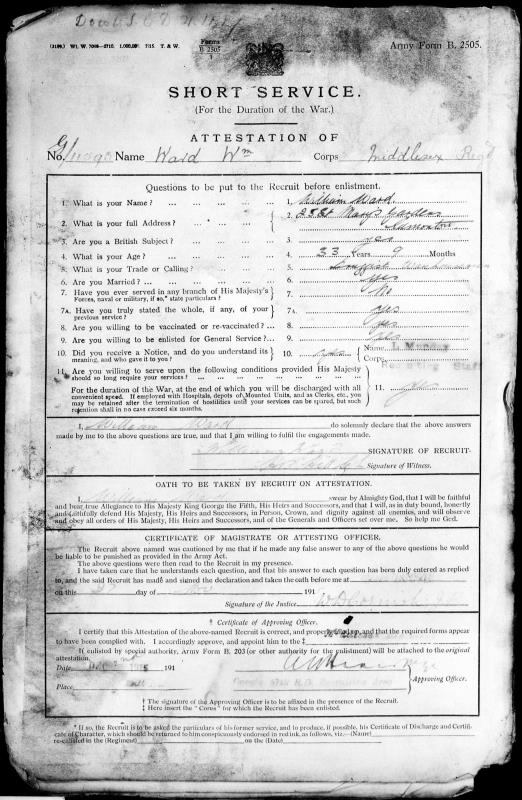 (3189.) Wt. W. 7098—5710. 1,000,000. 7/15. T. & W.
Forms
B. 2505
1
Army Form B. 2505.
SHORT SERVICE.
(For the Duration of the War.)
ATTESTATION OF
No. Name Ward Wm Corps Middlesex Regt
Questions to be put to the Recruit before enlistment.
1. What is your Name? ... ... ... ... 1. William Ward.
2. What is your full Address? ... ... ... 2. St Mary's
Edmonton
3. Are you a British Subject? ... ... ... 3. yes
4. What is your Age? ... ... ... ... 4. 33 Years 9 Months
5. What is your Trade or Calling? ... ... ... 5.
6. Are you Married? ... ... ... ... 6. yes
7. Have you ever served in any branch of His Majesty's Forces, naval or military, if so,* state particulars? 7. No
7A. Have you truly stated the whole, if any, of your previous service? 7A. yes
8. Are you willing to be vaccinated or re-vaccinated? ... 8. yes
9. Are you willing to be enlisted for General Service? ... 9. yes
10. Did you receive a Notice, and do you understand its meaning, and who gave it to you? 10. yes Name L. Munday
Corps Recruiting Staff
11. Are you willing to serve upon the following conditions provided His Majesty
should so long require your services? ... ... ... ... ...
For the duration of the War, at the end of which you will be discharged with all
convenient speed. If employed with Hospitals, depots of Mounted Units, and as Clerks, etc., you
may be retained after the termination of hostilities until your services can be spared, but such
retention shall in no case exceed six months.
11. yes
I, William Ward do solemnly declare that the above answers
made by me to the above questions are true, and that I am willing to fulfil the engagements made.
SIGNATURE OF RECRUIT.
Signature of Witness.
OATH TO BE TAKEN BY RECRUIT ON ATTESTATION.
I, swear by Almighty God, that I will be faithful
and bear true Allegiance to His Majesty King George the Fifth, His Heirs and Successors, and that I will, as in duty bound, honestly
and faithfully defend His Majesty, His Heirs and Successors, in Person, Crown, and dignity against all enemies, and will observe
and obey all orders of His Majesty, His Heirs and Successors, and of the Generals and Officers set over me. So help me God.
CERTIFICATE OF MAGISTRATE OR ATTESTING OFFICER.
The Recruit above named was cautioned by me that if he made any false answer to any of the above questions he would
be liable to be punished as provided in the Army Act.
The above questions were then read to the Recruit in my presence.
I have taken care that he understands each question, and that his answer to each question has been duly entered as replied
to, and the said Recruit has made and signed the declaration and taken the oath before me at
on this day of 191
Signature of the Justice
† Certificate of Approving Officer.
I certify that this Attestation of the above-named Recruit is correct, and properly filled up, and that the required forms appear
to have been complied with. I accordingly approve, and appoint him to the ‡
If enlisted by special authority, Army Form B. 203 (or other authority for the enlistment) will be attached to the original
attestation.
Date 191
Place
Approving Officer.
† The signature of the Approving Officer is to be affixed in the presence of the Recruit.
‡ Here insert the "Corps" for which the Recruit has been enlisted.
* If so, the Recruit is to be asked the particulars of his former service, and to produce, if possible, his Certificate of Discharge and Certifi-
cate of Character, which should be returned to him conspicuously endorsed in red ink, as follows, viz.—(Name)
re-enlisted in the (Regiment) on the (Date)